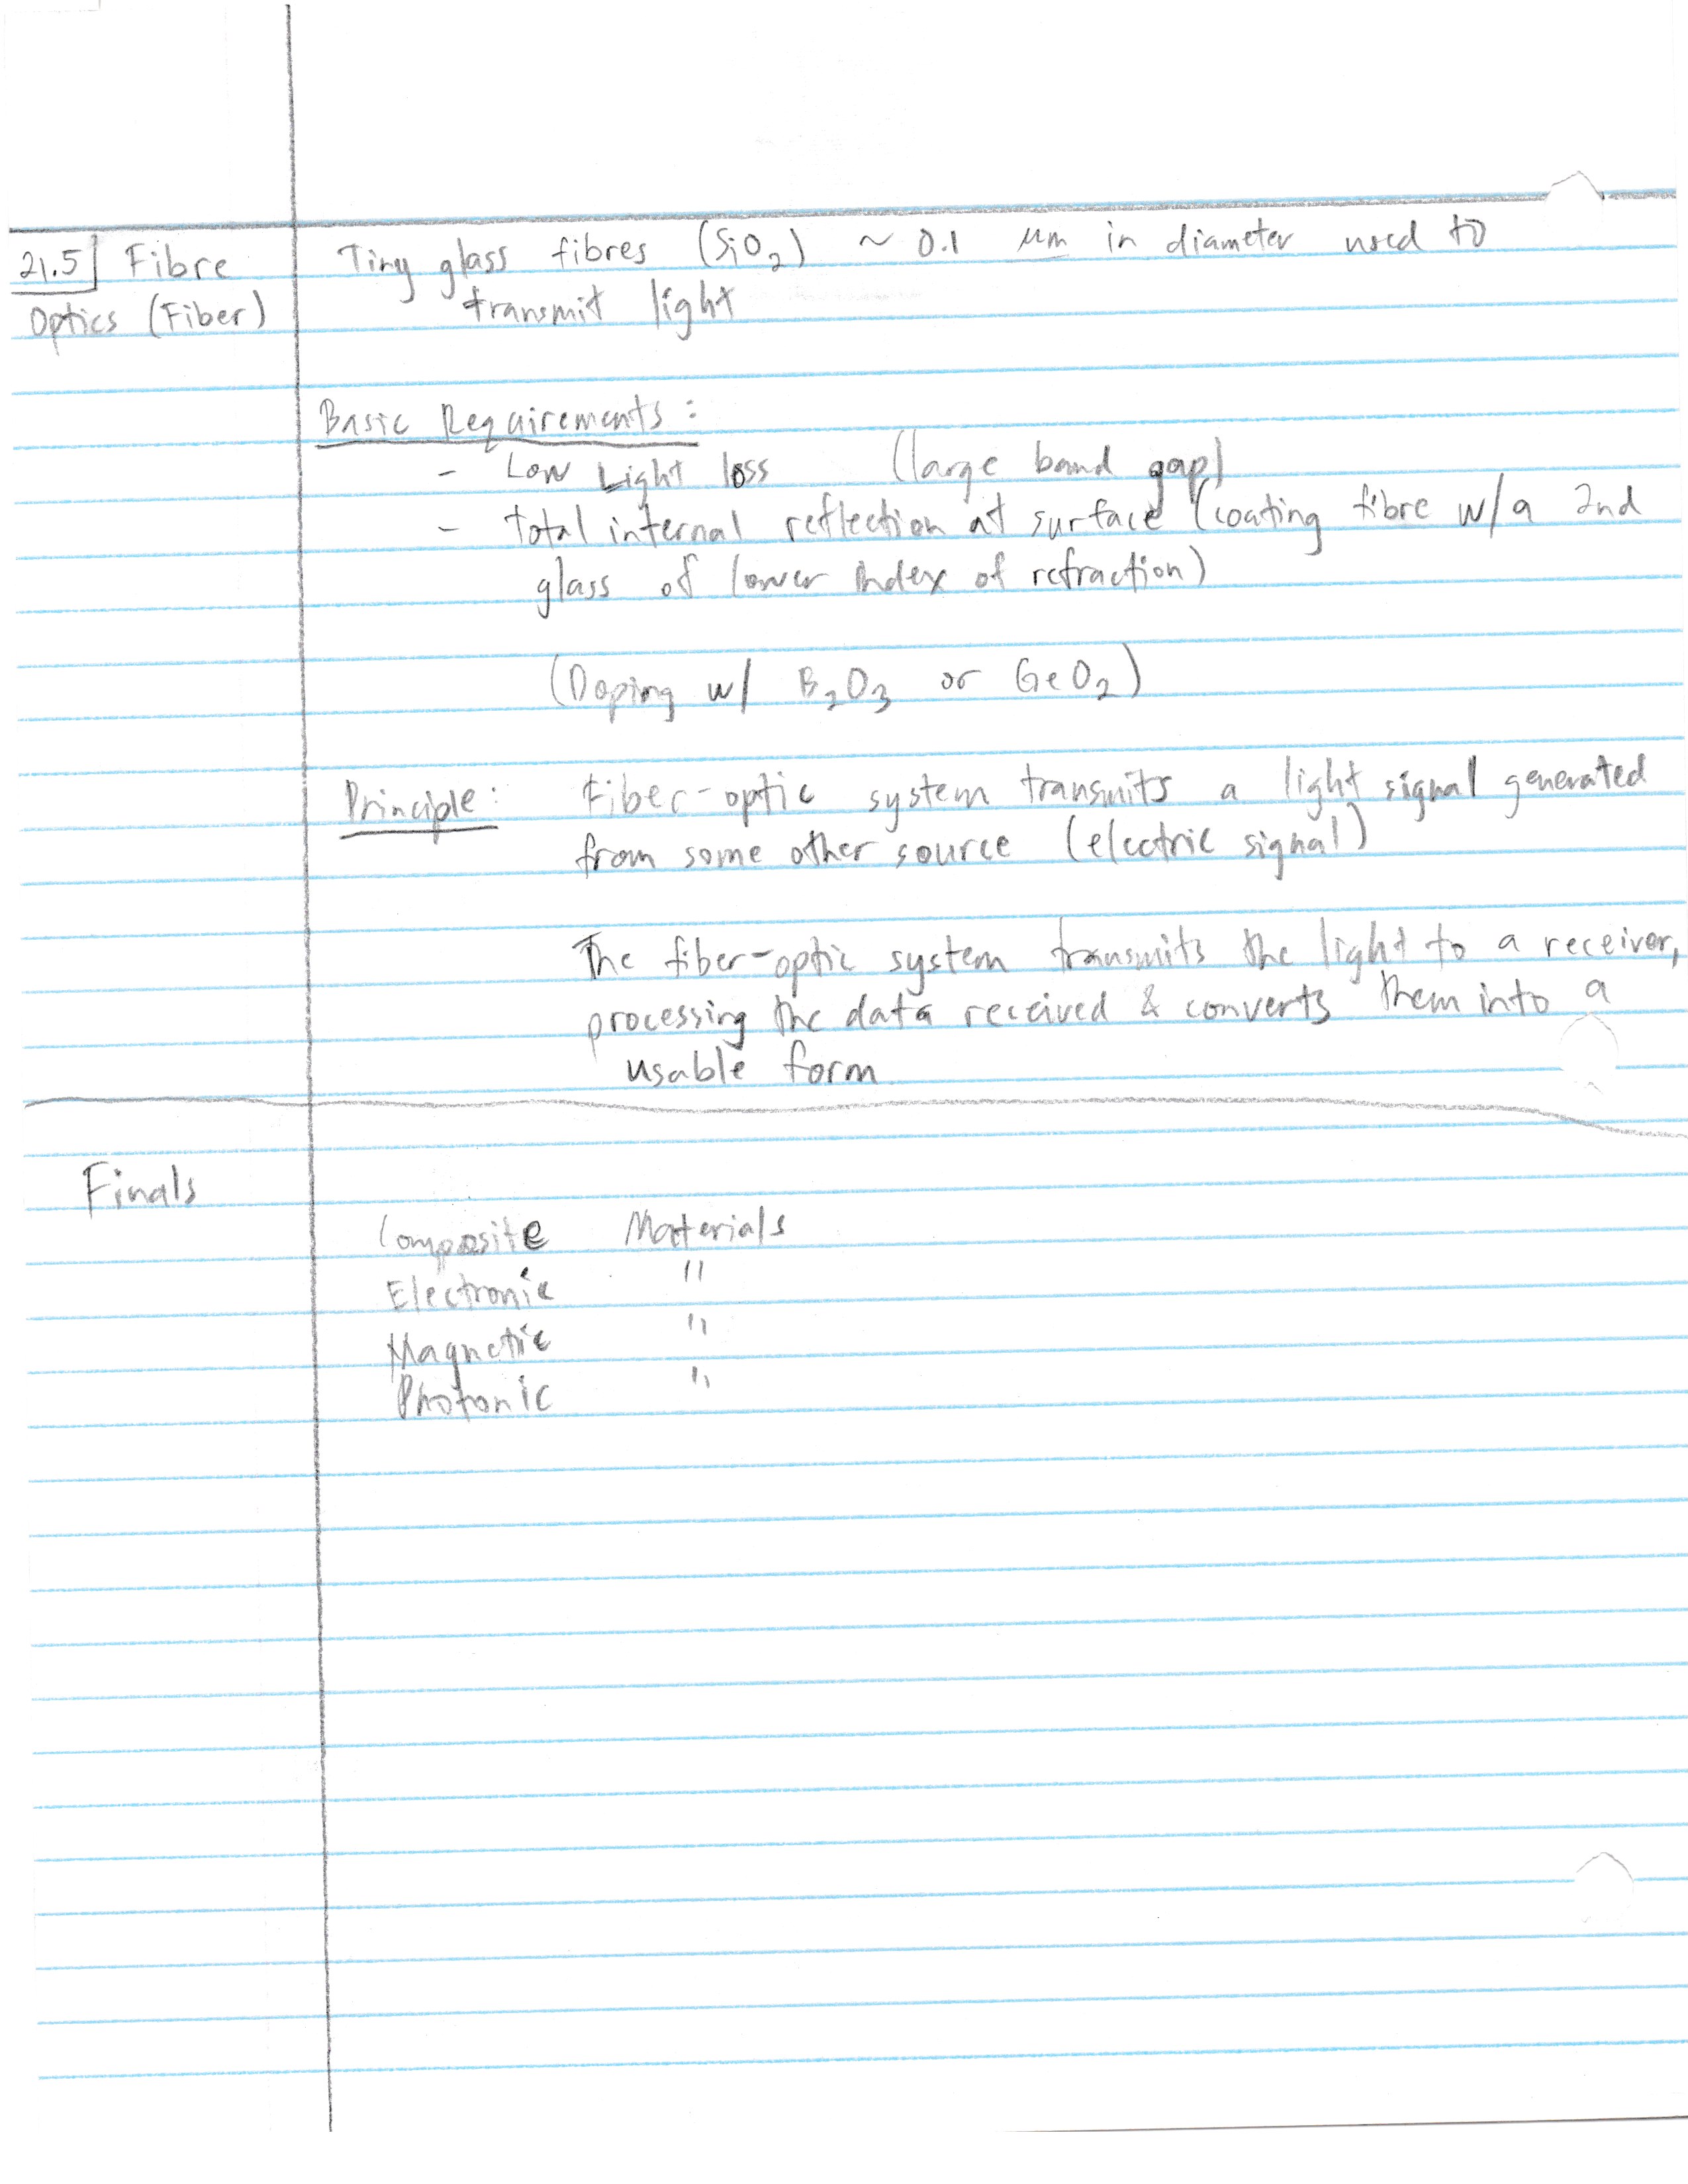 21.5 Fibre
Optics (Fiber)
Tiny glass fibres (SiO₂) ~ 0.1 μm in diameter used to
transmit light
Basic Requirements:
- Low Light loss (large band gap)
- total internal reflection at surface (coating fibre w/a 2nd
glass of lower index of refraction)
(Doping w/ B₂O₃ or GeO₂)
Principle: Fiber-optic system transmits a light signal generated
from some other source (electric signal)
The fiber-optic system transmits the light to a receiver,
processing the data received & converts them into a
usable form
Finals
Composite Materials
Electronic "
Magnetic "
Photonic "